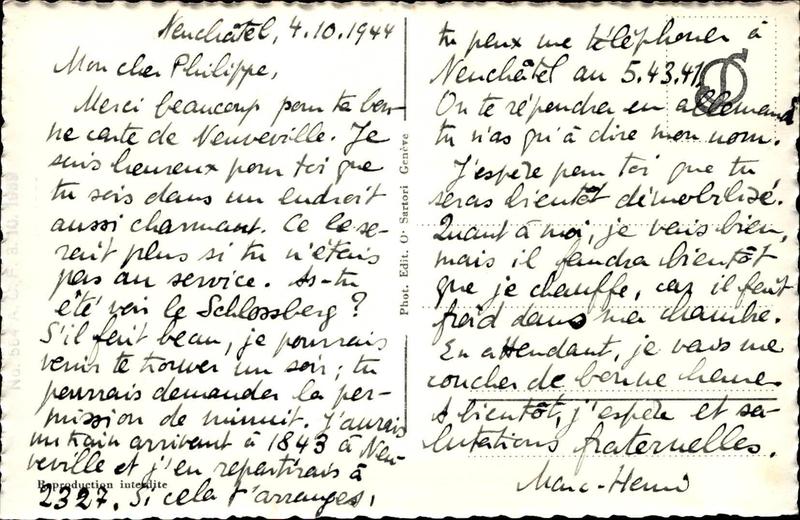 Neuchâtel, 4.10.1944
Mon cher Philippe,
Merci beaucoup pour ta bon-
ne carte de Neuveville. Je
suis heureux pour toi que
tu sois dans un endroit
aussi charmant. Ce le se-
rait plus si tu n'étais
pas au service. As-tu
été voir le Schlossberg ?
S'il fait beau, je pourrais
venir te trouver un soir ; tu
pourrais demander la per-
mission de minuit. J'aurais
un train arrivant à 1843 à Neu-
veville et j'en repartirais à
2327. Si cela t'arranges,
Reproduction interdite
Phot. Edit. O. Sartori Genève
tu peux me téléphoner à
Neuchâtel au 5.43.41.
On te répendra en allemand
tu n'as qu'à dire mon nom.
J'espère pour toi que tu
seras bientôt démobilisé.
Quant à moi, je vais bien,
mais il faudra bientôt
que je chauffe, car il fait
froid dans ma chambre.
En attendant, je vais me
coucher de bonne heure.
A bientôt, j'espère et sa-
lutations fraternelles.
Marc-Henri